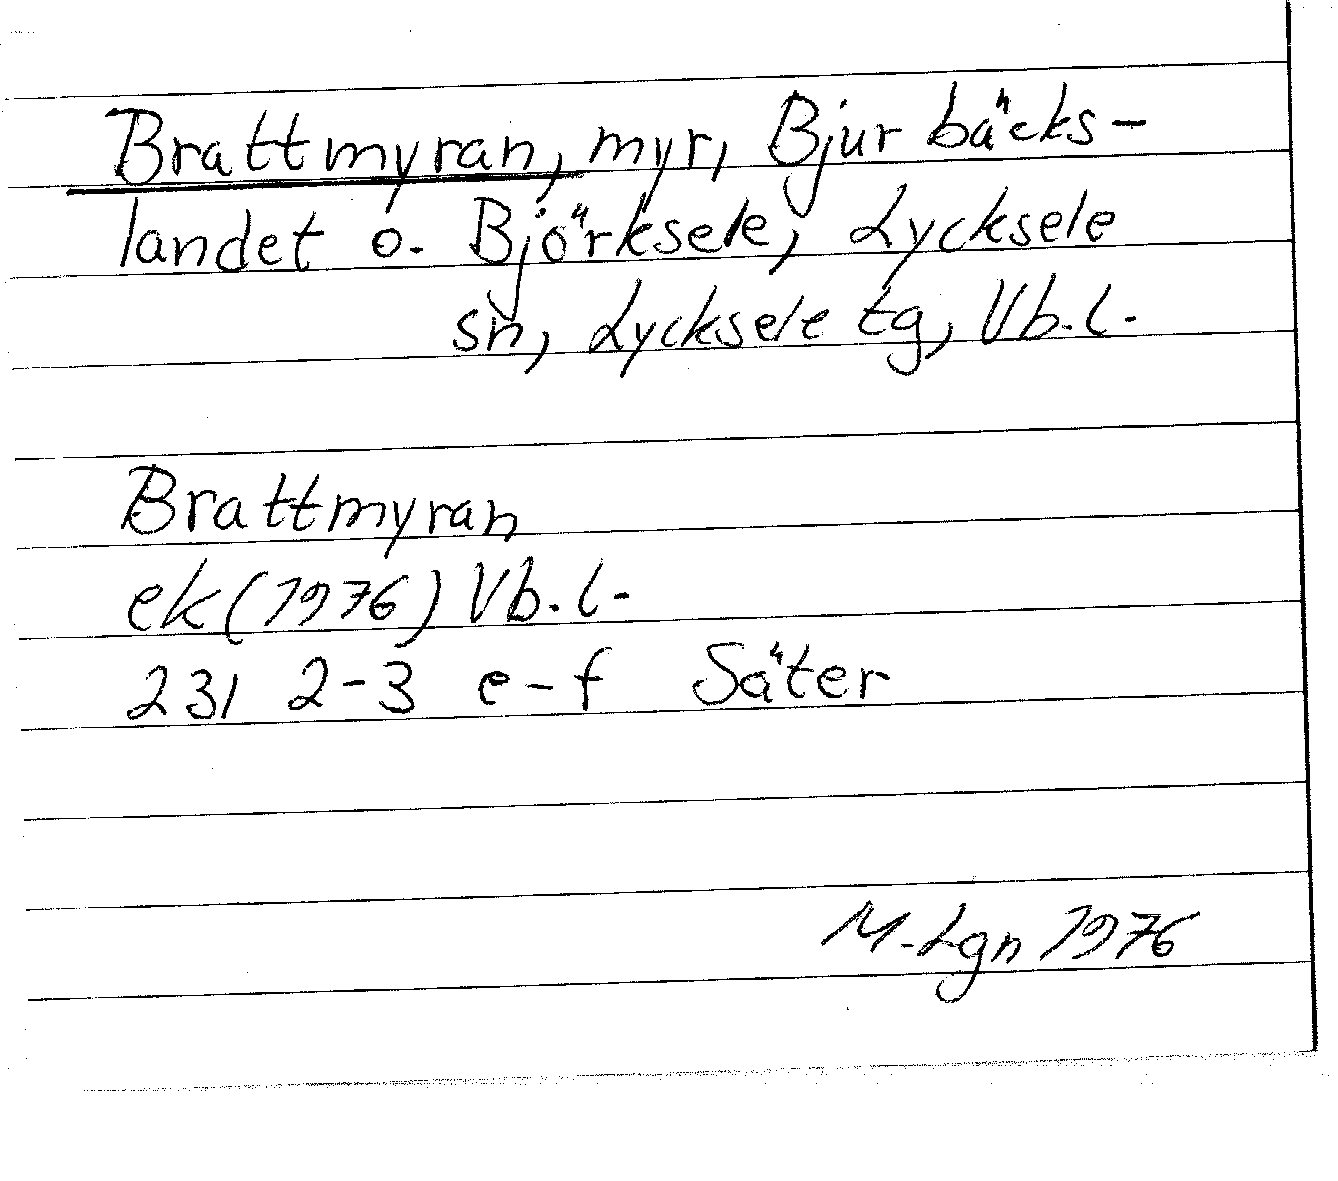 Brattmyran, myr, Bjurbäcks-
landet o. Björksele, Lycksele
sn, Lycksele tg, Vb.l.
Brattmyran
ek (1976) Vb.l.
231 2-3 e-f Säter
M. Lgn 1976